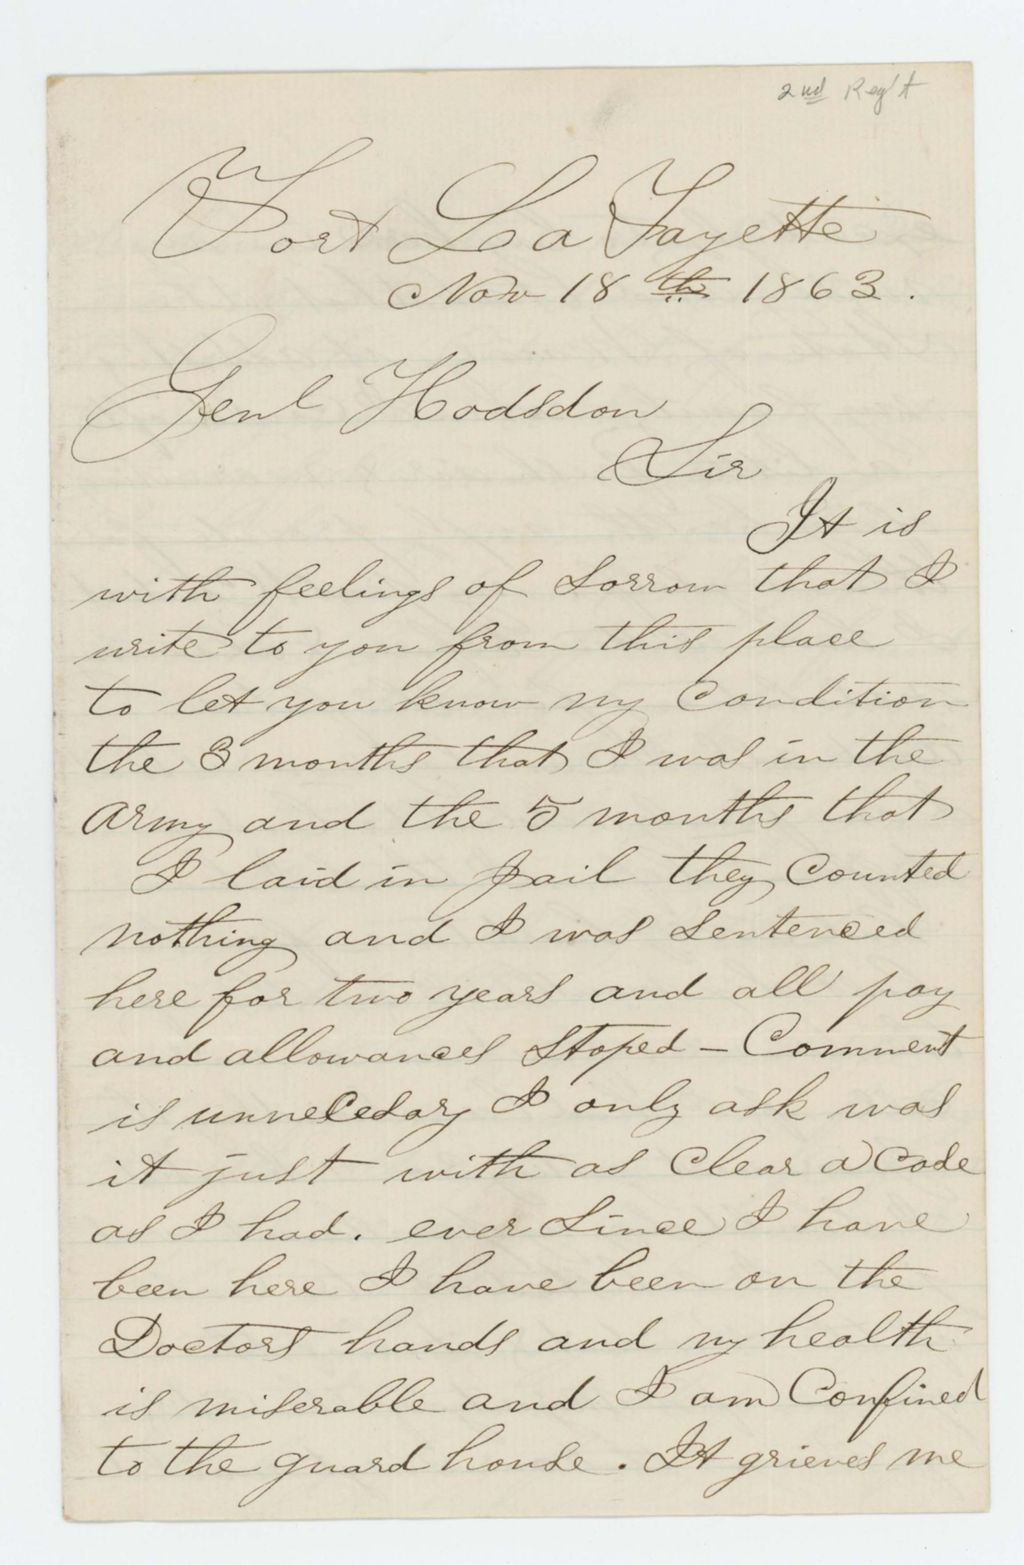 2nd Reg't
Fort La Fayette
Nov 18th 1863.
Genl Hodsdon
Sir
It is
with feelings of sorrow that I
write to you from this place
to let you know my Condition
the 8 months that I was in the
army and the 5 months that
I laid in Jail they Counted
nothing and I was sentenced
here for two years and all pay
and allowances stoped – Comment
is unnecesary I only ask was
it just with as Clear a Case
as I had. ever since I have
been here I have been on the
Doctors hands and my health
is miserable and I am Confined
to the guard house. It grieves me